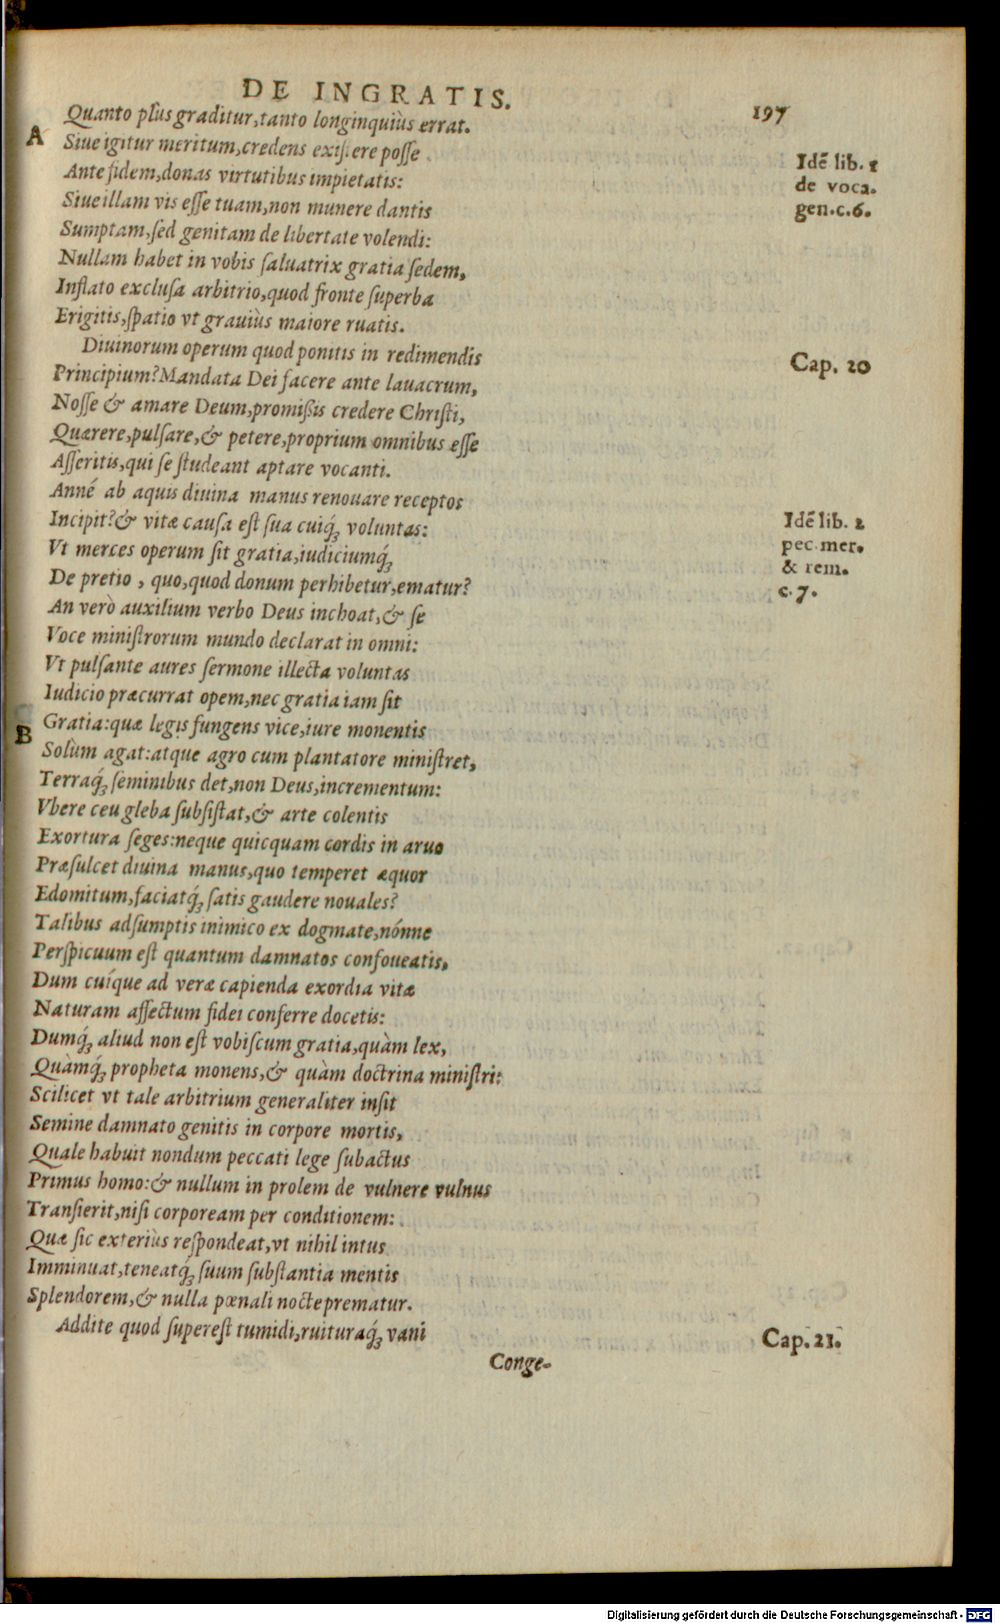 DE INGRATIS.
197
Quanto plus graditur, tanto longinquiùs errat.
A
Siue igitur meritum, credens existere posse
Idẽ lib. 1
Ante fidem, donas virtutibus impietatis:
de voca.
Siue illam vis esse tuam, non munere dantis
gen. c. 6.
Sumptam, sed genitam de libertate volendi:
Nullam habet in vobis saluatrix gratia sedem,
Inflato exclusa arbitrio, quod fronte superba
Erigitis, spatio vt grauiùs maiore ruatis.
Diuinorum operum quod ponitis in redimendis
Cap. 20
Principium? Mandata Dei facere ante lauacrum,
Nosse & amare Deum, promißis credere Christi,
Quærere, pulsare, & petere, proprium omnibus esse
Asseritis, qui se studeant aptare vocanti.
Anné ab aquis diuina manus renouare receptos
Incipit? & vitæ causa est sua cuiq́; voluntas:
Idẽ lib. 2
Vt merces operum sit gratia, iudiciumq́;
pec. mer.
De pretio, quo, quod donum perhibetur, ematur?
& rem.
c. 7.
An verò auxilium verbo Deus inchoat, & se
Voce ministrorum mundo declarat in omni:
Vt pulsante aures sermone illecta voluntas
Iudicio præcurrat opem, nec gratia iam sit
B
Gratia: quæ legis fungens vice, iure monentis
Solùm agat: atque agro cum plantatore ministret,
Terraq́; seminibus det, non Deus, incrementum:
Vbere ceu gleba subsistat, & arte colentis
Exortura seges: neque quicquam cordis in aruo
Præsulcet diuina manus, quo temperet æquor
Edomitum, faciatq́; satis gaudere nouales?
Talibus adsumptis inimico ex dogmate, nónne
Perspicuum est quantum damnatos confoueatis,
Dum cuíque ad veræ capienda exordia vitæ
Naturam affectum fidei conferre docetis:
Dumq́; aliud non est vobiscum gratia, quàm lex,
Quàmq́; propheta monens, & quàm doctrina ministri:
Scilicet vt tale arbitrium generaliter insit
Semine damnato genitis in corpore mortis,
Quale habuit nondum peccati lege subactus
Primus homo: & nullum in prolem de vulnere vulnus
Transierit, nisi corpoream per conditionem:
Quæ sic exteriùs respondeat, vt nihil intus
Imminuat, teneatq́; suum substantia mentis
Splendorem, & nulla pœnali nocte prematur.
Addite quod superest tumidi, ruituraq́; vani
Cap. 21.
Conge-
Digitalisierung gefördert durch die Deutsche Forschungsgemeinschaft - DFG